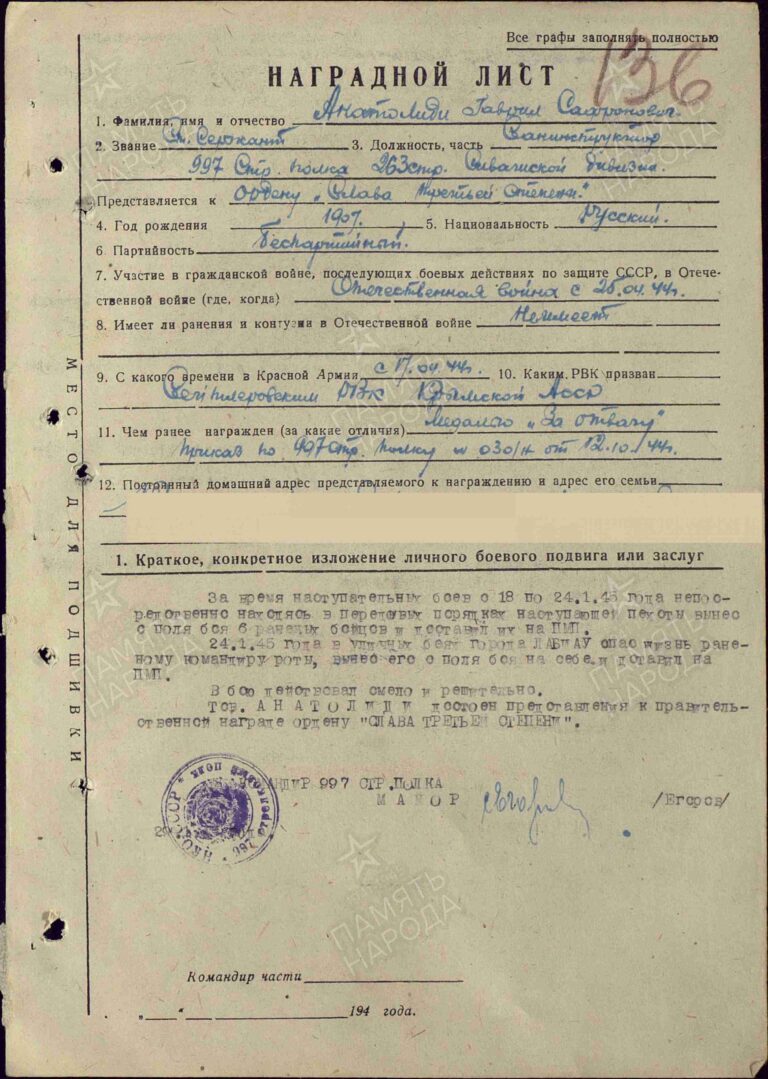 Все графы заполнять полностью
136
НАГРАДНОЙ ЛИСТ
1. Фамилия, имя и отчество Анатолиди Гавриил Сафронович
2. Звание Ст. Сержант 3. Должность, часть Санинструктор
997 Стр. полка 263 стр. Сивашской дивизии.
Представляется к ордену „Слава третьей степени."
4. Год рождения 1907. 5. Национальность Русский.
6. Партийность беспартийный.
7. Участие в гражданской войне, последующих боевых действиях по защите СССР, в Отече-
ственной войне (где, когда) Отечественная война с 25.04.44г.
8. Имеет ли ранения и контузии в Отечественной войне Неимеет
9. С какого времени в Красной Армии с 17.04.44г. 10. Каким РВК призван
РВК Крымской АССР
11. Чем ранее награжден (за какие отличия) Медалью „За отвагу"
Приказ по 997 стр. полку № 030/н от 12.10.44г.
12. Постоянный домашний адрес представляемого к награждению и адрес его семьи
1. Краткое, конкретное изложение личного боевого подвига или заслуг
За время наступательных боев с 18 по 24.1.45 года непос-
редственно находясь в передовых порядках наступающей пехоты вынес
с поля боя 6 раненых бойцов и доставил их на ПМП.
24.1.45 года в уличных боях города ЛАБИАУ спас жизнь ране-
ному командиру роты, вынес его с поля боя на себе и доставил на
ПМП.
В бою действовал смело и решительно.
Тов. АНАТОЛИДИ достоен представления к правитель-
ственной награде ордену "СЛАВА ТРЕТЬЕЙ СТЕПЕНИ".
КОМАНДИР 997 СТР.ПОЛКА
МАЙОР /Егоров/
НКО СССР
997 стрелковый полк
Командир части
„ " 194 года.
МЕСТО ДЛЯ ПОДШИВКИ
ПАМЯТЬ НАРОДА